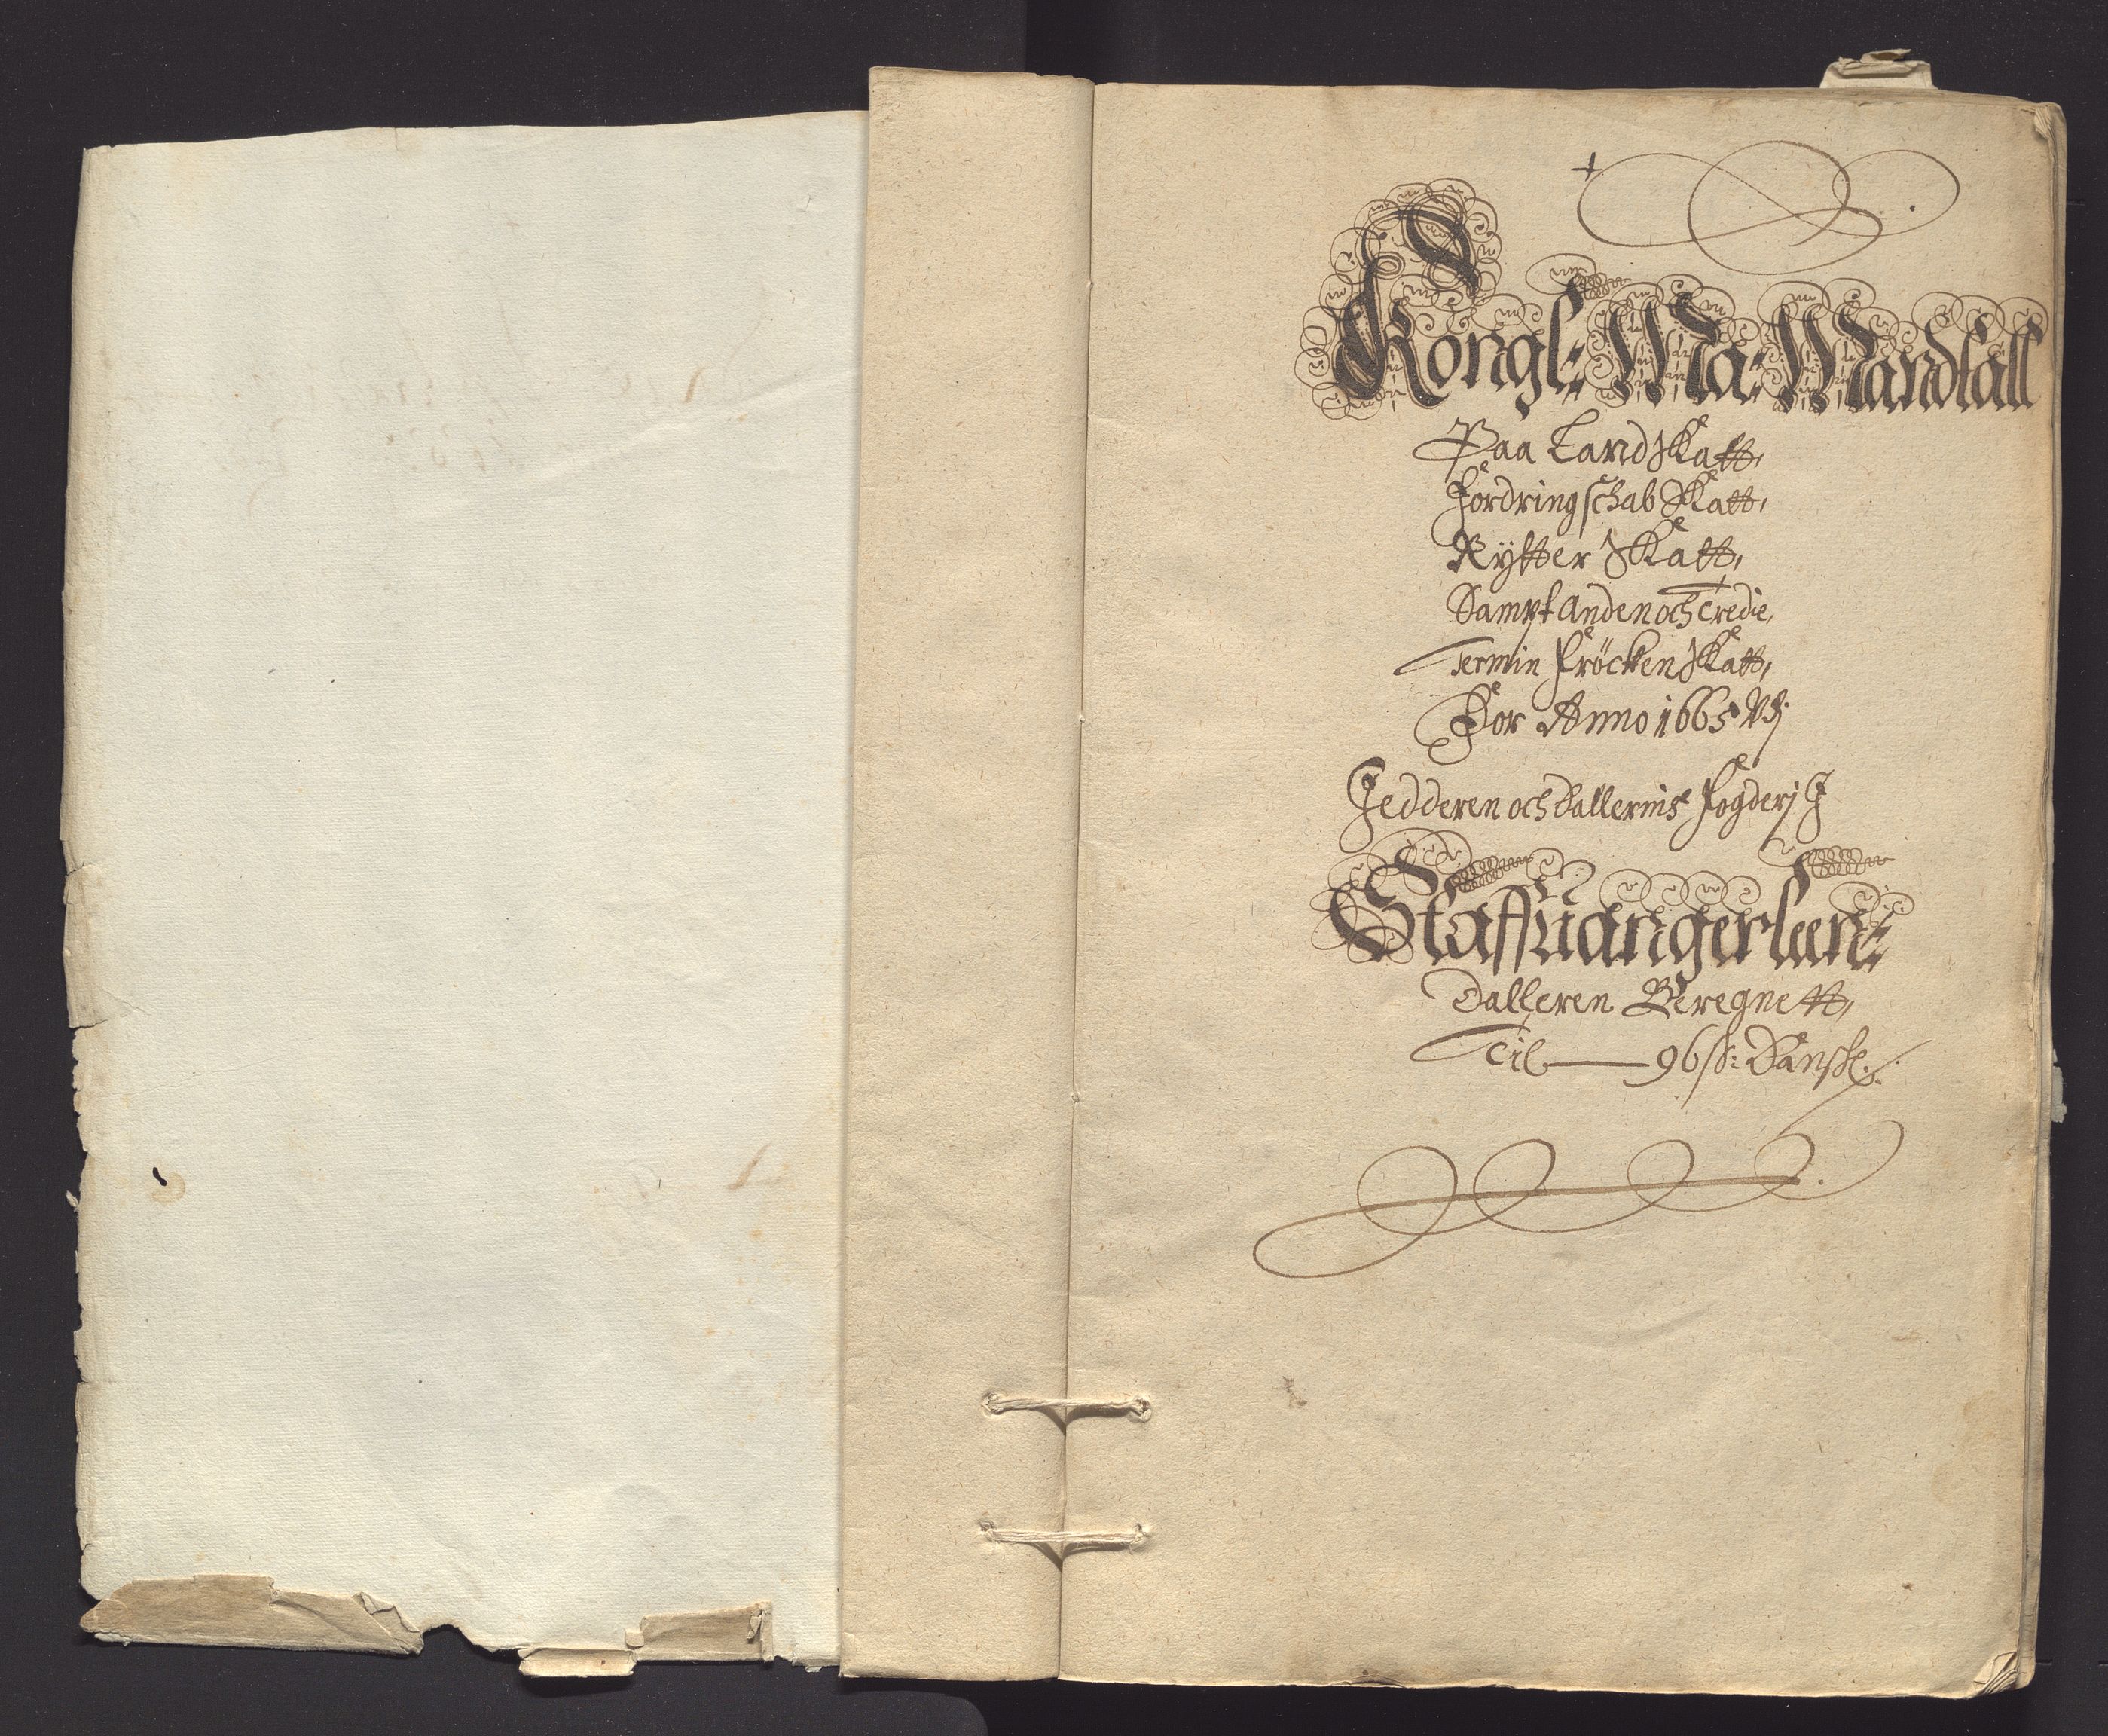 Kongl: Ma: Mandtall
Paa Land Skatt,
Fordringschab Skatt,
Rytter Skatt,
Sampt Anden och Tredie,
Termin Fröcken Skatt,
For Anno 1665
Jedderen och Dallernis Fogderj J
Staffuanger leen:
Dalleren Beregnett,
Til 96 ß: Danske.